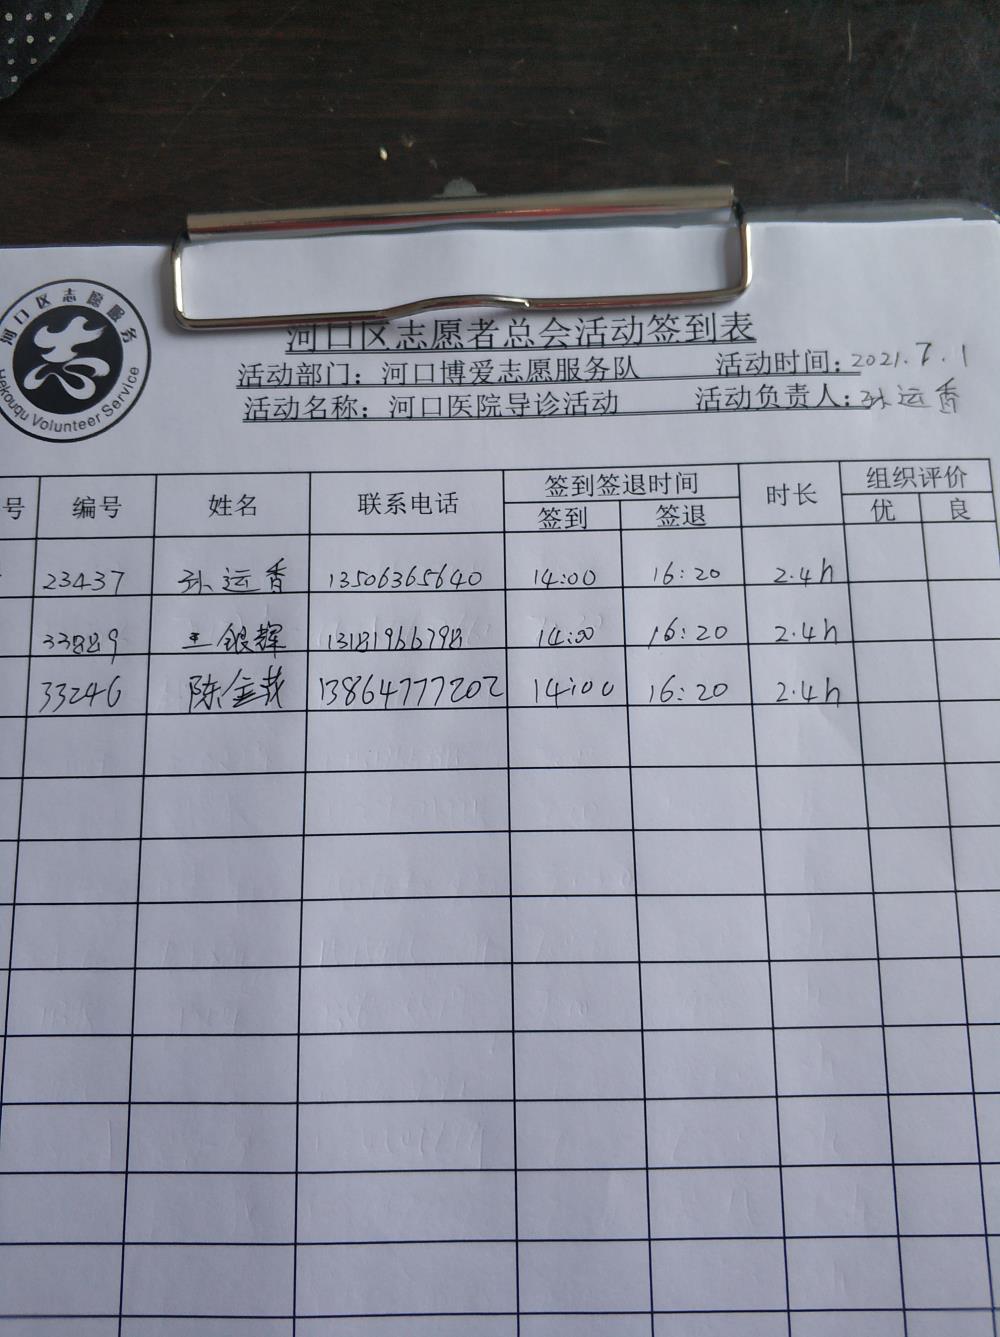 河口区志愿服务
Hekouqu Volunteer Service
河口区志愿者总会活动签到表
活动部门：河口博爱志愿服务队 活动时间：2021.7.1
活动名称：河口医院导诊活动 活动负责人：孙运香
号 编号 姓名 联系电话 签到签退时间 时长 组织评价
签到 签退 优 良
23437 孙运香 13506365640 14:00 16:20 2.4h
33889 王银辉 13181966798 14:00 16:20 2.4h
33246 陈金茂 13864777202 14:00 16:20 2.4h